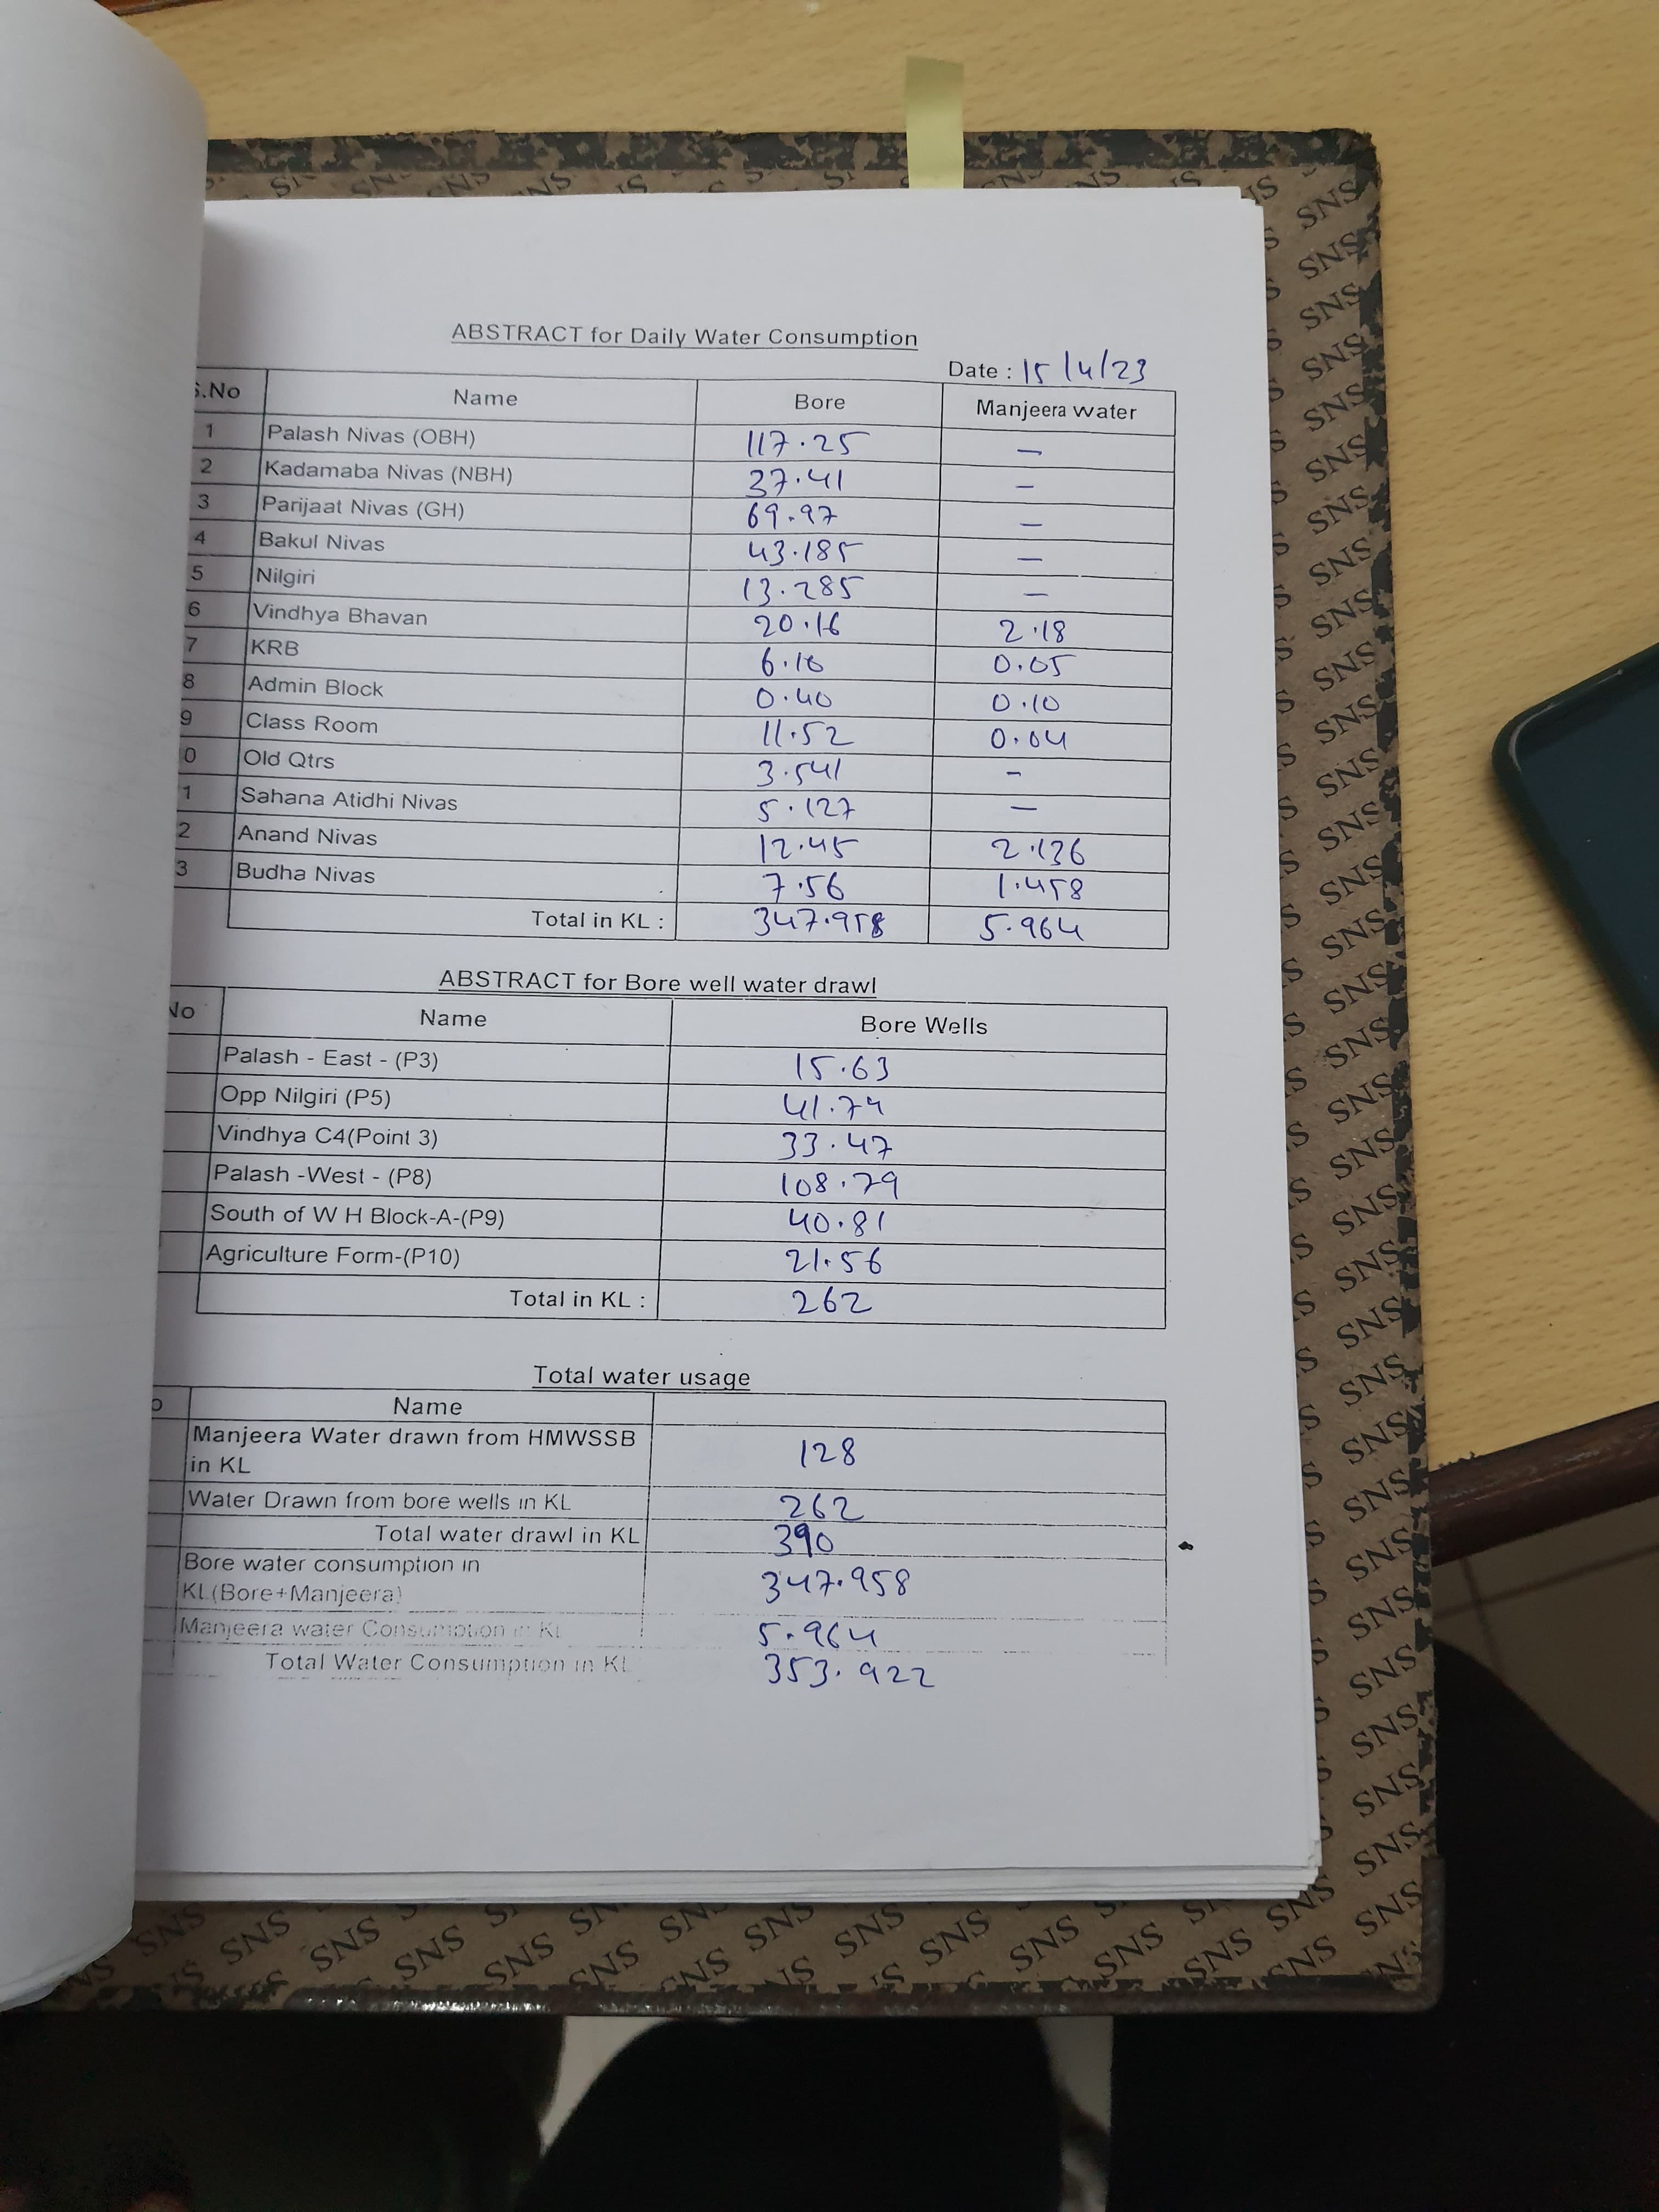 ABSTRACT for Daily Water Consumption
Date : 15/4/23
S.No Name Bore Manjeera water
1 Palash Nivas (OBH) 117.25 —
2 Kadamaba Nivas (NBH) 37.41 —
3 Parijaat Nivas (GH) 69.97 —
4 Bakul Nivas 43.185 —
5 Nilgiri 13.285 —
6 Vindhya Bhavan 20.16 2.18
7 KRB 6.10 0.05
8 Admin Block 0.40 0.10
9 Class Room 11.52 0.04
0 Old Qtrs 3.541 -
1 Sahana Atidhi Nivas 5.127 —
2 Anand Nivas 12.45 2.136
3 Budha Nivas 7.56 1.458
Total in KL : 347.958 5.964
ABSTRACT for Bore well water drawl
No Name Bore Wells
Palash - East - (P3) 15.63
Opp Nilgiri (P5) 41.74
Vindhya C4(Point 3) 33.47
Palash -West - (P8) 108.79
South of W H Block-A-(P9) 40.81
Agriculture Form-(P10) 21.56
Total in KL : 262
Total water usage
o Name
Manjeera Water drawn from HMWSSB
in KL 128
Water Drawn from bore wells in KL 262
Total water drawl in KL 390
Bore water consumption in
KL(Bore+Manjeera) 347.958
Manjeera water Consumption in KL 5.964
Total Water Consumption in KL 353.922
SNS